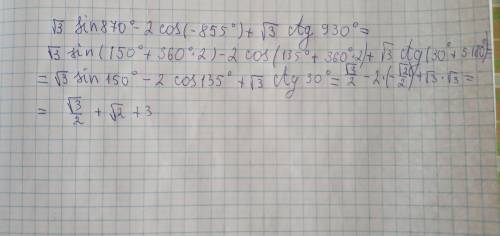 √3 sin 870° - 2 cos(-855°) + √3 ctg 930° =
√3 sin(150° + 360°·2) - 2 cos(135° + 360°·2) + √3 ctg(30° + 5·180°)
= √3 sin 150° - 2 cos 135° + √3 ctg 30° = √3/2 - 2·(-√2/2) + √3·√3 =
= √3/2 + √2 + 3